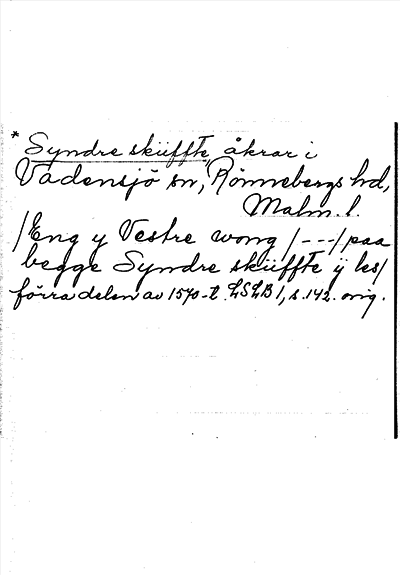 * Syndre skiffte, åkrar i
Vadensjö sn, Rönnebergs hd,
Malm. l.
/Eng y Vestre wong /---/ paa
begge Syndre skiiffte ÿ les/
förra delen av 1570-t. LSLB 1, s. 142. orig.